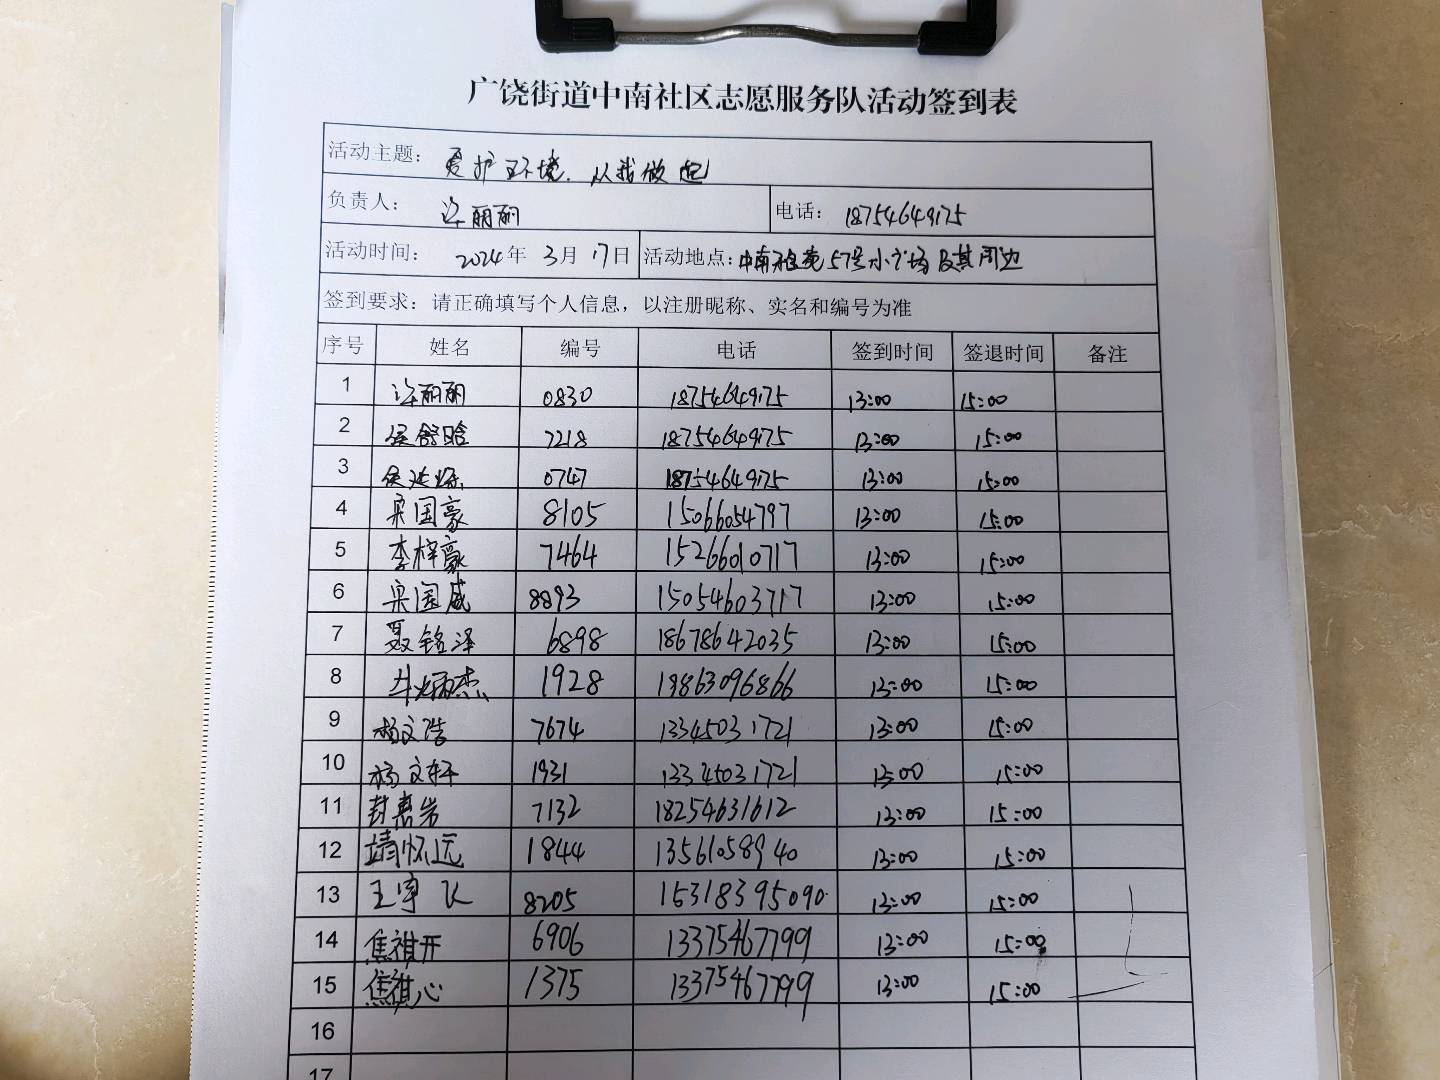 广饶街道中南社区志愿服务队活动签到表
活动主题: 爱护环境.从我做起
负责人: 许丽丽 电话: 18754649175
活动时间: 2024年 3月 17日 活动地点: 中南 57号小广场及其周边
签到要求: 请正确填写个人信息，以注册昵称、实名和编号为准
序号 姓名 编号 电话 签到时间 签退时间 备注
1 许丽丽 0830 18754649175 13:00 15:00
2 侯舒晗 7218 18754649175 13:00 15:00
3 0747 18754649175 13:00 15:00
4 梁国豪 8105 15066054797 13:00 15:00
5 李梓豪 7464 15266010717 13:00 15:00
6 梁国威 8893 15054603717 13:00 15:00
7 聂铭泽 6898 18678642035 13:00 15:00
8 1928 19863096866 13:00 15:00
9 杨文浩 7674 13345031721 13:00 15:00
10 杨文轩 1931 13345031721 13:00 15:00
11 封嘉岩 7132 18254631612 13:00 15:00
12 靖怀远 1844 13561058940 13:00 15:00
13 王宇飞 8205 15318395090 13:00 15:00
14 焦祺开 6906 13375467799 13:00 15:00
15 焦祺心 1375 13375467799 13:00 15:00
16
17